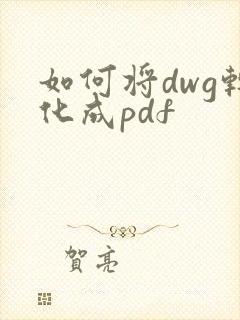 如何将dwg轉
化成pdf
賀亮